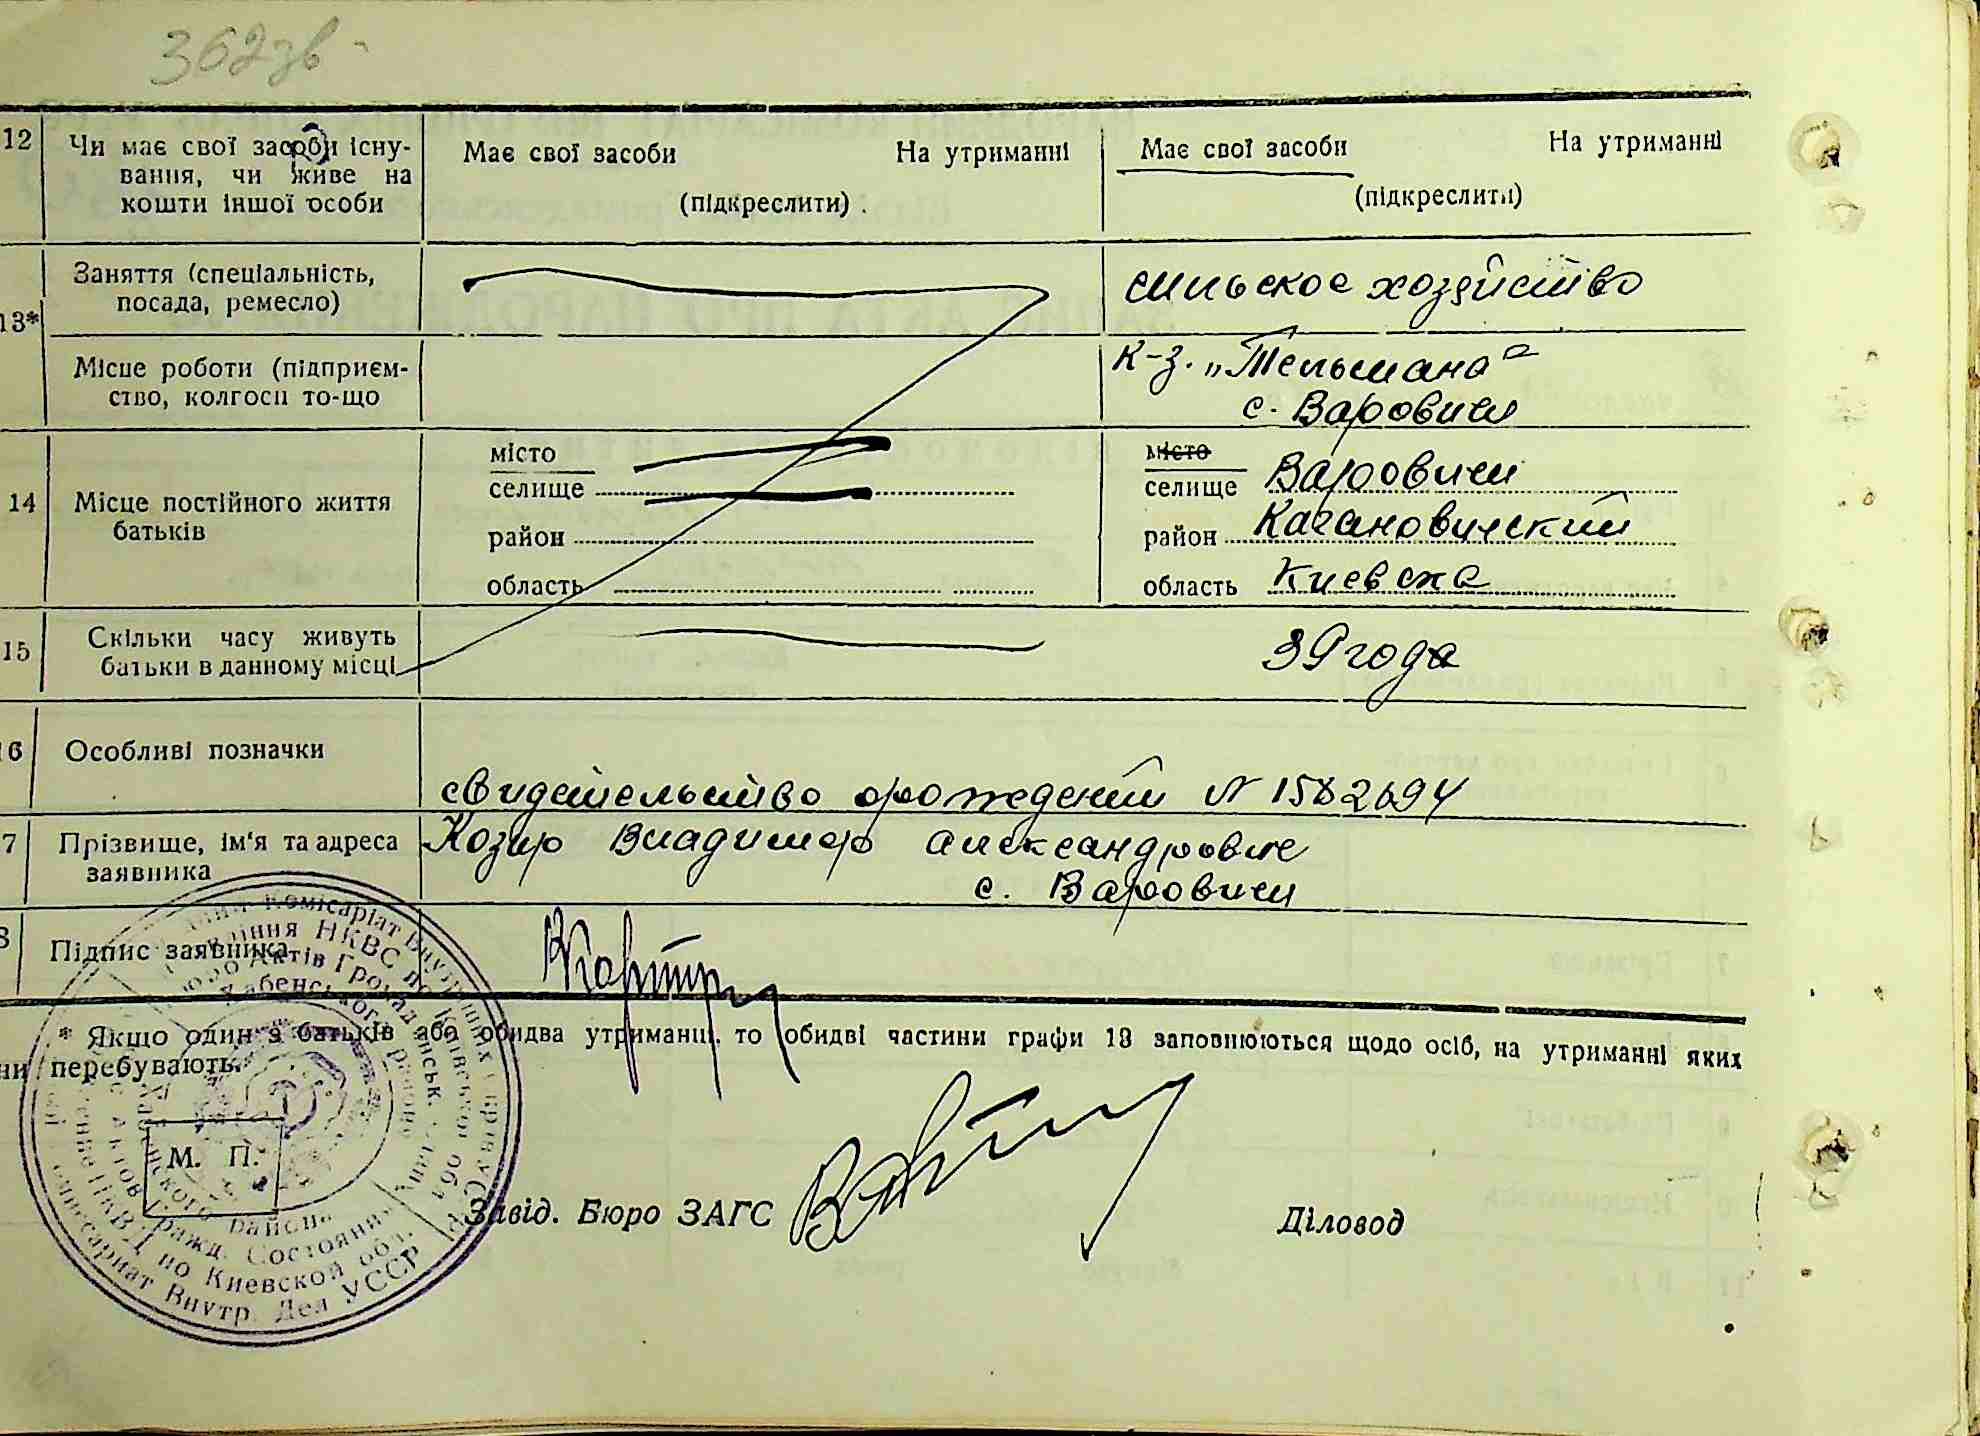 362 зв.
12 Чи має свої засоби існу-
вання, чи живе на
кошти іншої особи
Має свої засоби На утриманні
(підкреслити).
Має свої засоби На утриманні
(підкреслити)
13*
Заняття (спеціальність,
посада, ремесло)
сильское хозяйство
Місце роботи (підприєм-
ство, колгосп то-що
к-з. „Тельмана"
с. Варовичи
14 Місце постійного життя
батьків
місто
селище
район
область
місто
селище Варовичи
район Кагановичский
область Киевска
15 Скільки часу живуть
батьки в данному місці
39 года
16 Особливі позначки
свидетельство о рождении N
7 Прізвище, ім'я та адреса
заявника
Козир Владимер Александрович
с. Варовичи
8 Підпис заявника
* Якщо один з батьків або обидва утриманці, то обидві частини графи 13 заповнюються щодо осіб, на утриманні яких
ни перебувають.
М. П.
Завід. Бюро ЗАГС
Діловод
Комісаріат Внутрішніх Справ УСРР
НКВС по Київській обл.
Бюро Актів Громадянськ. Стану
Хабенського району
Хабенского района
Актов Гражд. Состояния
НКВД по Киевской обл.
Комиссариат Внутр. Дел УССР